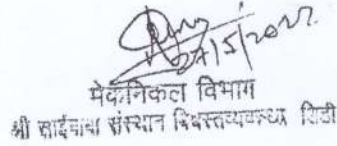 27/5/2022
मेकॅनिकल विभाग
श्री साईबाबा संस्थान विश्वस्तव्यवस्था शिर्डी